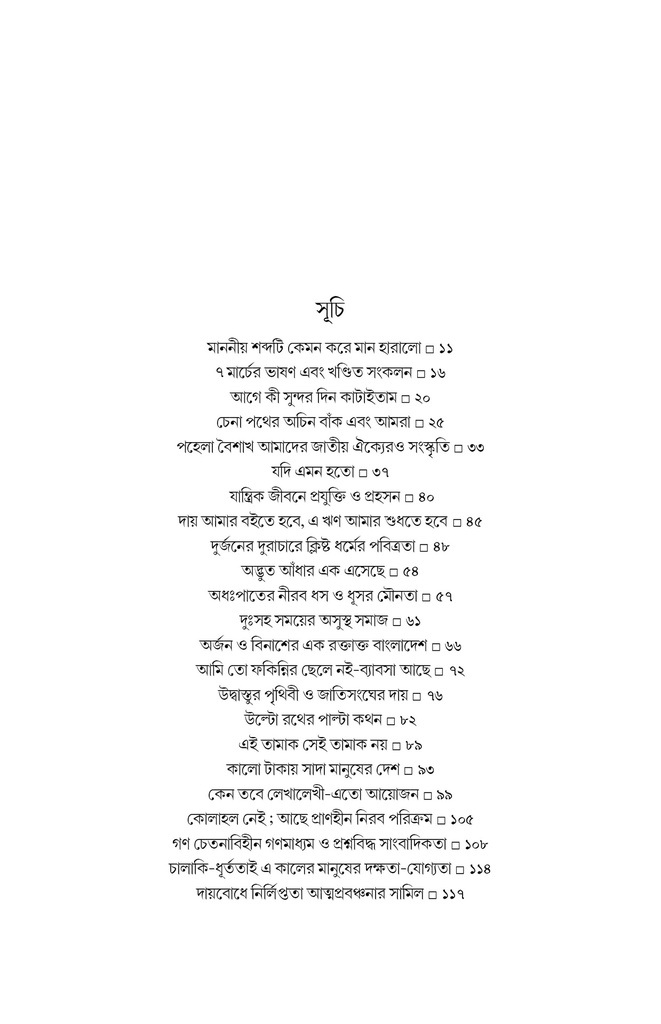 সূচি
মাননীয় শব্দটি কেমন করে মান হারালো □ ১১
৭ মার্চের ভাষণ এবং খণ্ডিত সংকলন □ ১৬
আগে কী সুন্দর দিন কাটাইতাম □ ২০
চেনা পথের অচিন বাঁক এবং আমরা □ ২৫
পহেলা বৈশাখ আমাদের জাতীয় ঐক্যেরও সংস্কৃতি □ ৩৩
যদি এমন হতো □ ৩৭
যান্ত্রিক জীবনে প্রযুক্তি ও প্রহসন □ ৪০
দায় আমার বইতে হবে, এ ঋণ আমার শুধতে হবে □ ৪৫
দুর্জনের দুরাচারে ক্লিষ্ট ধর্মের পবিত্রতা □ ৪৮
অদ্ভুত আঁধার এক এসেছে □ ৫৪
অধঃপাতের নীরব ধস ও ধূসর মৌনতা □ ৫৭
দুঃসহ সময়ের অসুস্থ সমাজ □ ৬১
অর্জন ও বিনাশের এক রক্তাক্ত বাংলাদেশ □ ৬৬
আমি তো ফকিন্নির ছেলে নই-ব্যাবসা আছে □ ৭২
উদ্বাস্তুর পৃথিবী ও জাতিসংঘের দায় □ ৭৬
উল্টো রথের পাল্টা কথন □ ৮২
এই তামাক সেই তামাক নয় □ ৮৯
কালো টাকায় সাদা মানুষের দেশ □ ৯৩
কেন তবে লেখালেখী-এতো আয়োজন □ ৯৯
কোলাহল নেই ; আছে প্রাণহীন নিরব পরিক্রম □ ১০৫
গণ চেতনাবিহীন গণমাধ্যম ও প্রশ্নবিদ্ধ সাংবাদিকতা □ ১০৮
চালাকি-ধূর্ততাই এ কালের মানুষের দক্ষতা-যোগ্যতা □ ১১৪
দায়বোধে নির্লিপ্ততা আত্মপ্রবঞ্চনার সামিল □ ১১৭